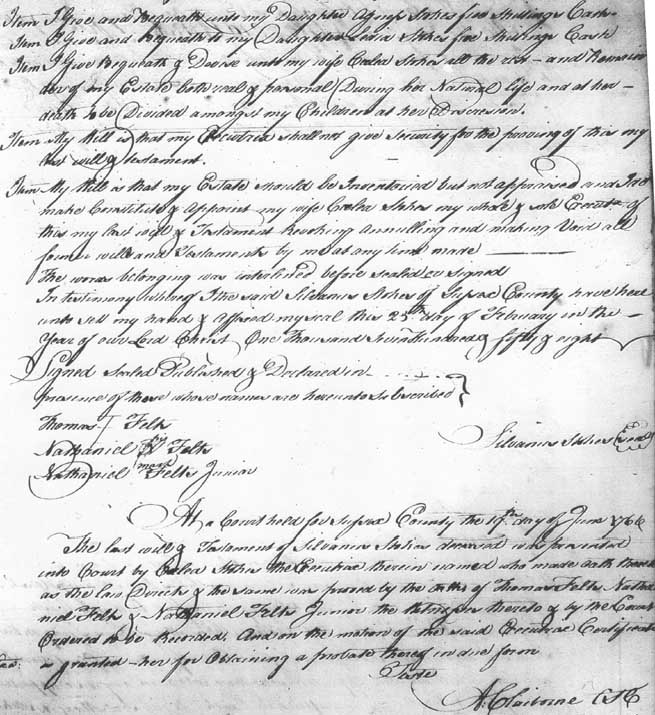 Item I Give and Bequeath unto my Daughter Agness Stokes five Shillings Cash
Item I Give and Bequeath to my Daughter Stokes five Shillings Cash
Item I Give Bequeath & Devise unto my wife Stokes all the rest and Remain
der of my Estate both real & personal During her Natural life and at her
death to be Divided amongst my Children at her Discresion.
Item My Will is that my Executrix shall not give Security for the proving of this my
last will & testament.
Item My Will is that my Estate should be Inventoried but not appraised and I
make Constitute & Appoint my wife Stokes my whole & sole of
this my last will & Testament Revoking Annulling and making Void all
former wills and Testaments by me at any time made
The words belonging was interlined before sealed or signed
In testimony whereof I the said Silvanus Stokes of Sussex County have here
unto set my hand & Affixed my seal this 25th day of February in the
Year of our Lord Christ One Thousand Seven Hundred & fifty & eight
Signed Sealed Published & Declared in
presence of those whose names are hereunto Subscribed
Thomas Felts
Nathaniel his Felts
Nathaniel mark Felts Junior
Silvanus Stokes Seal
At a Court held for Sussex County the 19th day of June
The last will & Testament of Silvanus Stokes deceased was presented
into Court by Stokes the Executrix therein named who made oath thereto
as the law Directs & the same was proved by the oaths of Thomas Felts Natha
niel Felts & Nathaniel Felts Junior the thereto & by the Court
Ordered to be Recorded. And on the motion of the said Executrix Certificate
is granted her for Obtaining a probate thereof in due form
Teste
A. Claiborne